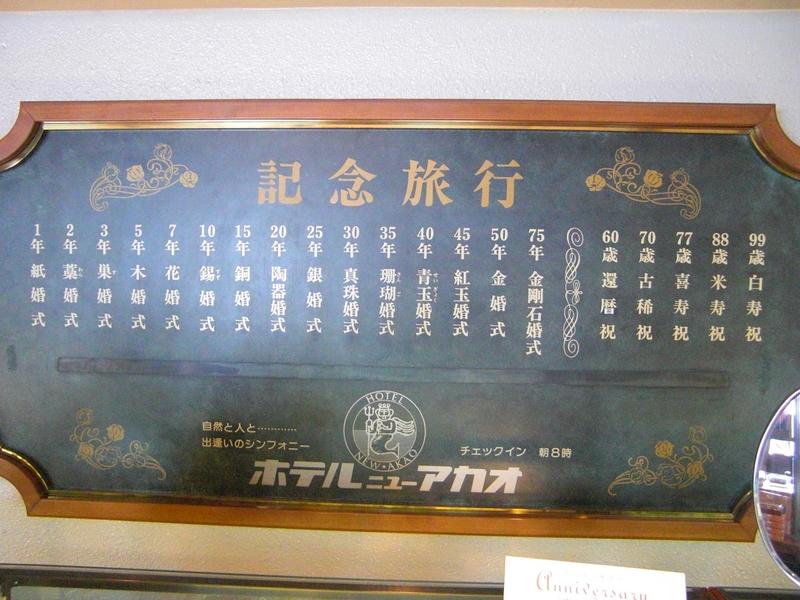 記念旅行
1年 紙婚式
2年 藁婚式
3年 巣婚式
5年 木婚式
7年 花婚式
10年 錫婚式
15年 銅婚式
20年 陶器婚式
25年 銀婚式
30年 真珠婚式
35年 珊瑚婚式
40年 青玉婚式
45年 紅玉婚式
50年 金婚式
75年 金剛石婚式
60歳 還暦祝
70歳 古稀祝
77歳 喜寿祝
88歳 米寿祝
99歳 白寿祝
自然と人と…………
出逢いのシンフォニー
HOTEL
NEW・AKAO
チェックイン 朝8時
ホテルニューアカオ
Anniversary